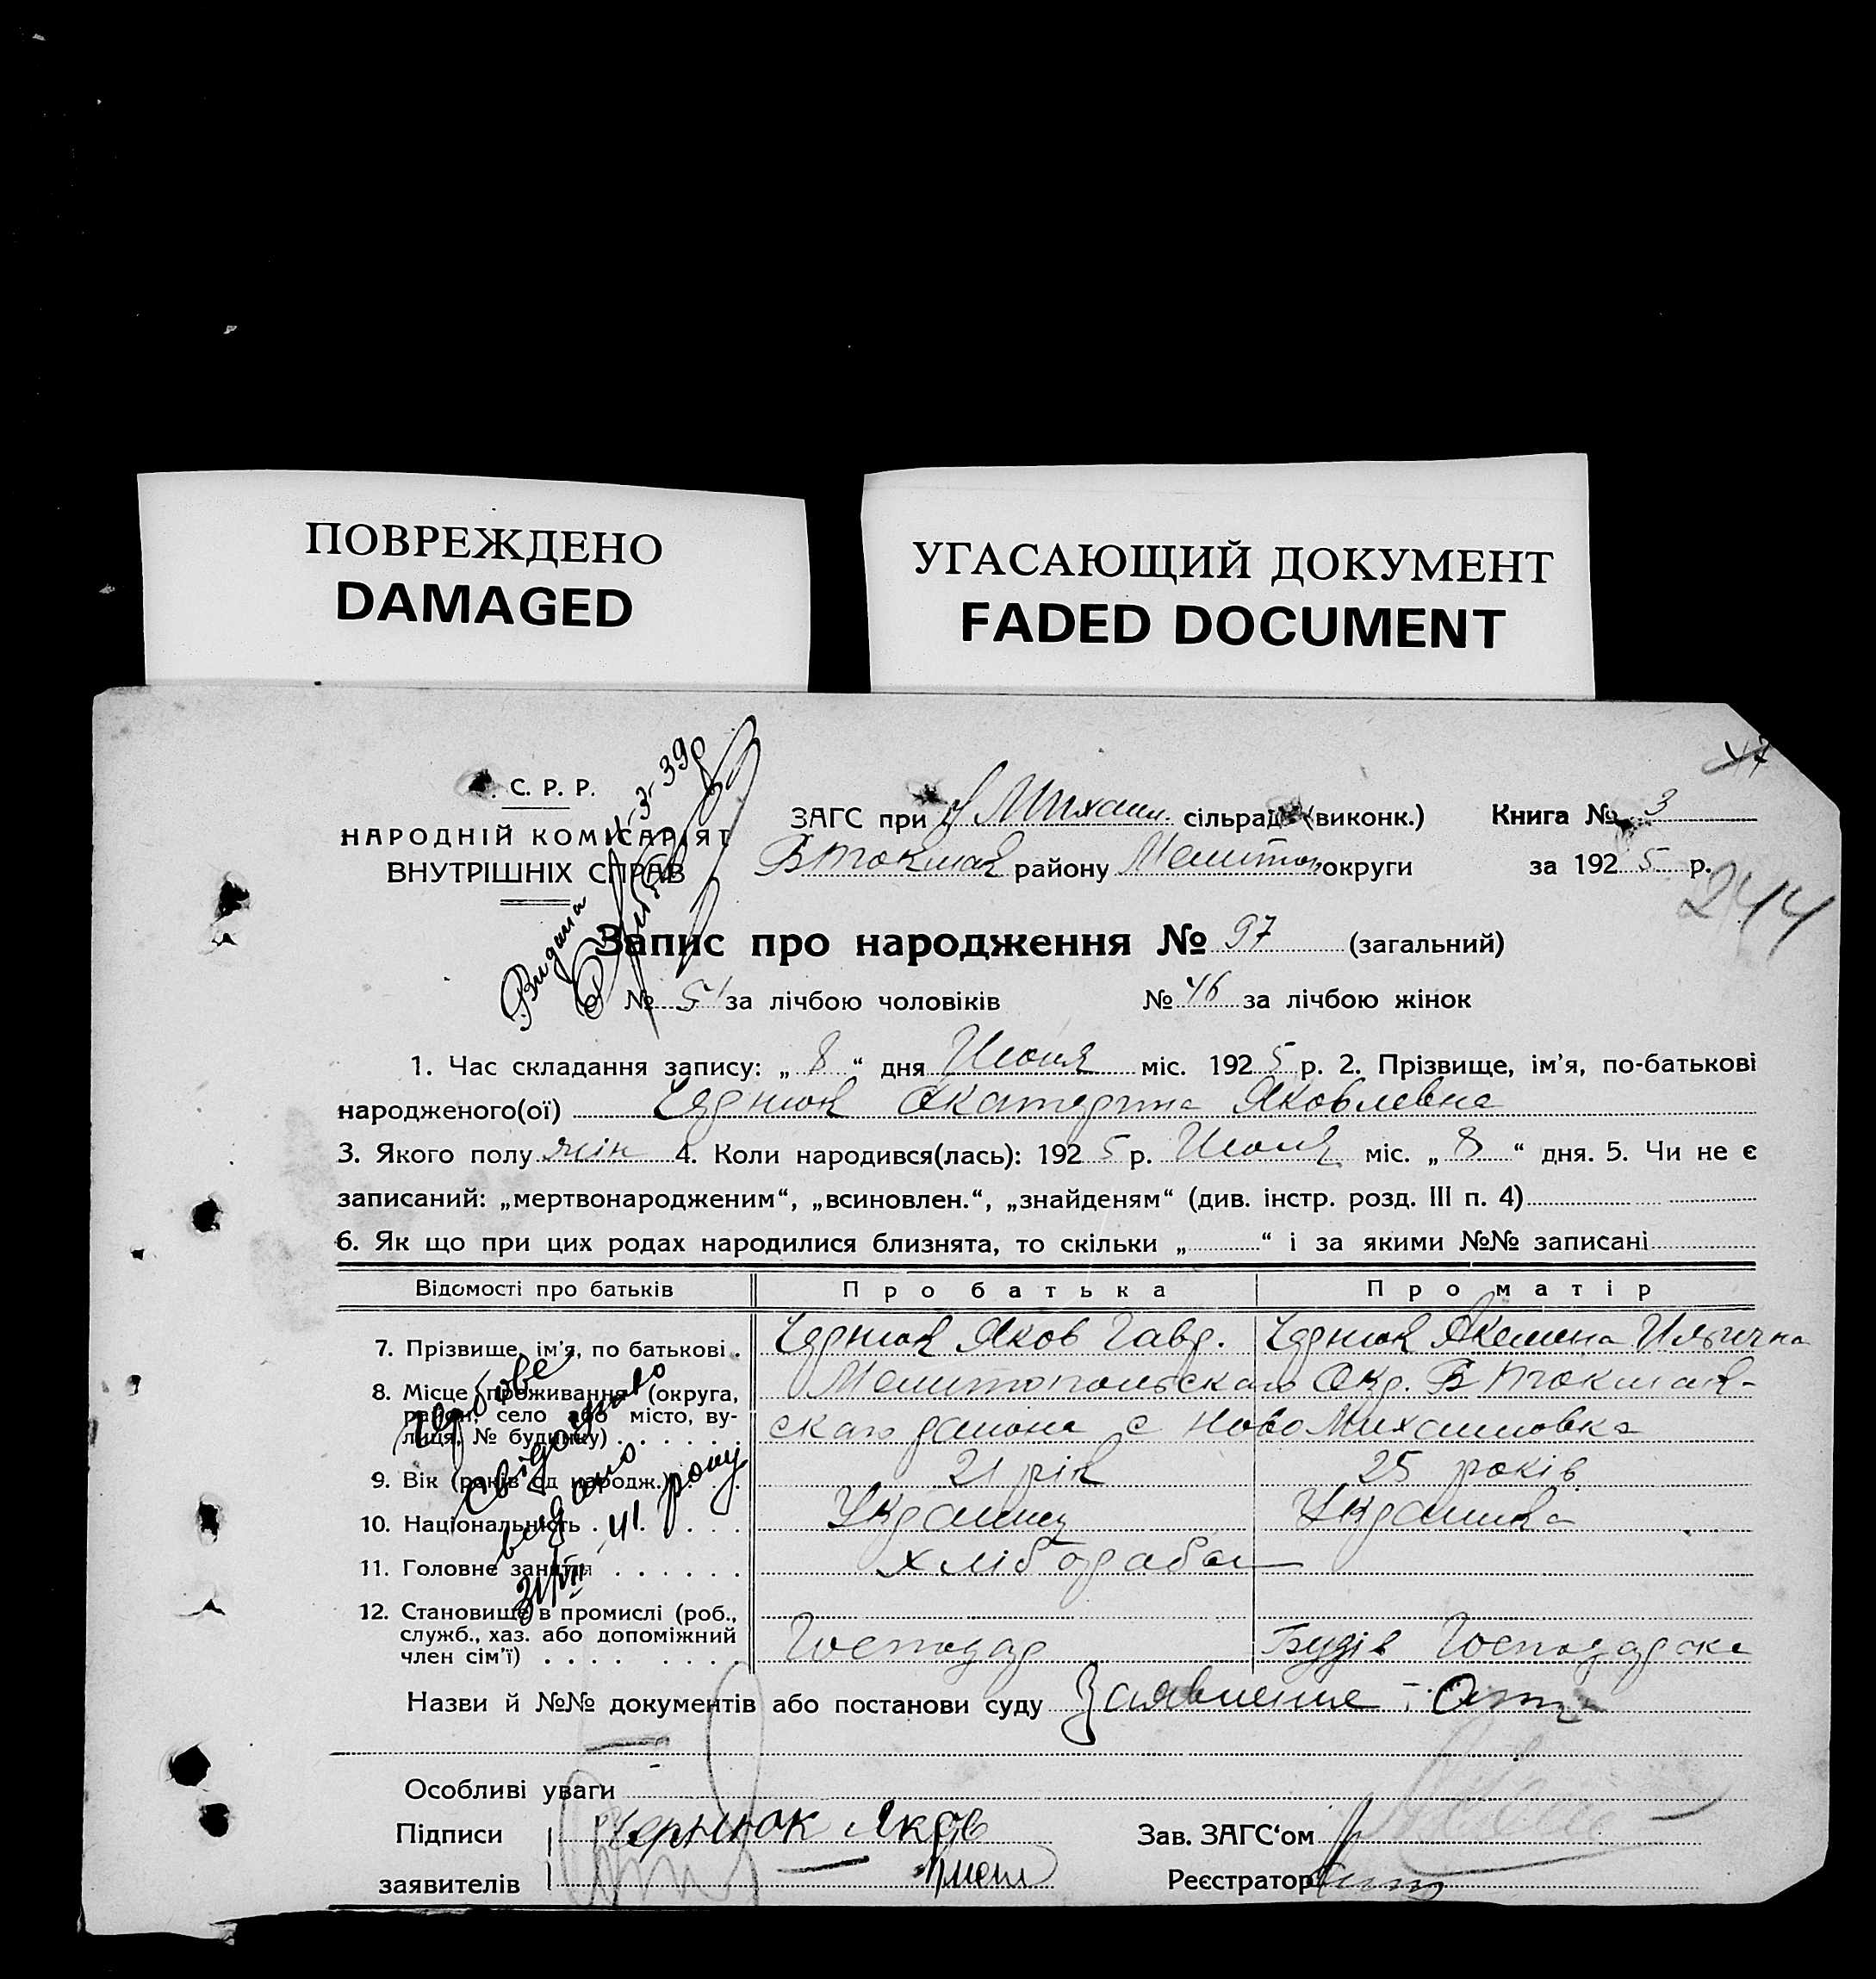 ПОВРЕЖДЕНО
DAMAGED
УГАСАЮЩИЙ ДОКУМЕНТ
FADED DOCUMENT
С. Р. Р.
НАРОДНІЙ КОМІСАРІЯТ
ВНУТРІШНІХ СПРАВ
ЗАГС при Н Михайл. сільрад (виконк.) Книга № 3
В Токмак району Мелитоп округи за 1925 р.
244
Видана
4-3-39р
Запис про народження № 97 (загальний)
№ 51 за лічбою чоловіків № 46 за лічбою жінок
1. Час складання запису: „ 8 “ дня Июля міс. 1925 р. 2. Прізвище, ім’я, по-батькові
народженого(ої) Чернюк Екатерина Яковлевна
3. Якого полу жін 4. Коли народився(лась): 1925 р. Июля міс. „ 8 “ дня. 5. Чи не є
записаний: „мертвонародженим“, „всиновлен.“, „знайденям“ (див. інстр. розд. III п. 4)
6. Як що при цих родах народилися близнята, то скільки „ “ і за якими №№ записані
Відомості про батьків Про батька Про матір
7. Прізвище, ім’я, по батькові . Чернюк Яков Гавр. Чернюк Акелина Ильична
8. Місце проживання (округа, Мелитопольскаго Окр. В Токмак-
район, село або місто, ву-
лиця, № будинку) скаго района с Ново Михайловка
9. Вік (років од народж.) 21 рік 25 років
10. Національність Украинец Украинка
11. Головне заняття хлібороба
12. Становище в промислі (роб.,
служб., хаз. або допоміжний
член сім’ї) Господар Господарска
свідоцтво
видано
41 року
Назви й №№ документів або постанови суду Заявление - Отца
Особливі уваги
Підписи Чернюк Яков Зав. ЗАГС‘ом
заявителів Реєстратор